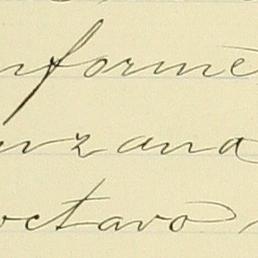 nforme
nzana
octavo